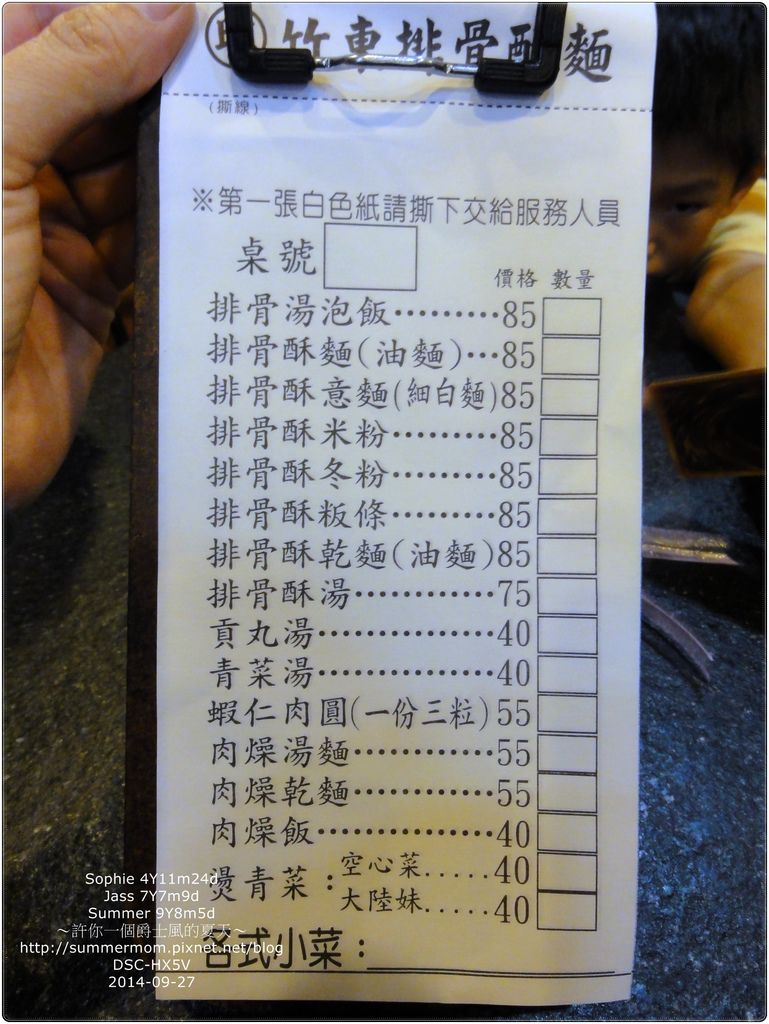 竹東排骨酥麵
(撕線)
※第一張白色紙請撕下交給服務人員
桌號
價格 數量
排骨湯泡飯·········85
排骨酥麵(油麵)···85
排骨酥意麵(細白麵)85
排骨酥米粉·········85
排骨酥冬粉·········85
排骨酥粄條·········85
排骨酥乾麵(油麵)85
排骨酥湯············75
貢丸湯···············40
青菜湯···············40
蝦仁肉圓(一份三粒)55
肉燥湯麵············55
肉燥乾麵············55
肉燥飯···············40
燙青菜：空心菜.....40
大陸妹.....40
各式小菜：
Sophie 4Y11m24d
Jass 7Y7m9d
Summer 9Y8m5d
～許你一個爵士風的夏天～
http://summermom.pixnet.net/blog
DSC-HX5V
2014-09-27